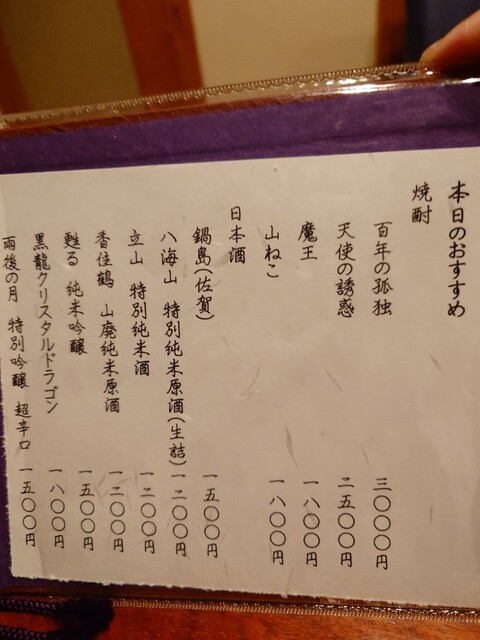 本日のおすすめ
焼酎
百年の孤独 三〇〇〇円
天使の誘惑 二五〇〇円
魔王 一八〇〇円
山ねこ 一八〇〇円
日本酒
鍋島(佐賀) 一五〇〇円
八海山 特別純米原酒(生詰) 一二〇〇円
立山 特別純米酒 一二〇〇円
香住鶴 山廃純米原酒 一二〇〇円
甦る 純米吟醸 一五〇〇円
黒龍クリスタルドラゴン 一八〇〇円
雨後の月 特別吟醸 超辛口 一五〇〇円